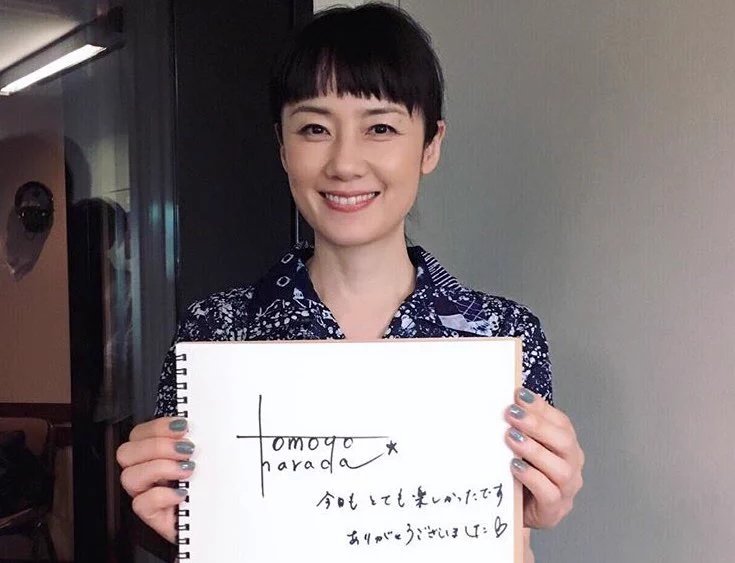 tomoyo
harada
今日も とても 楽しかったです
ありがとうございました